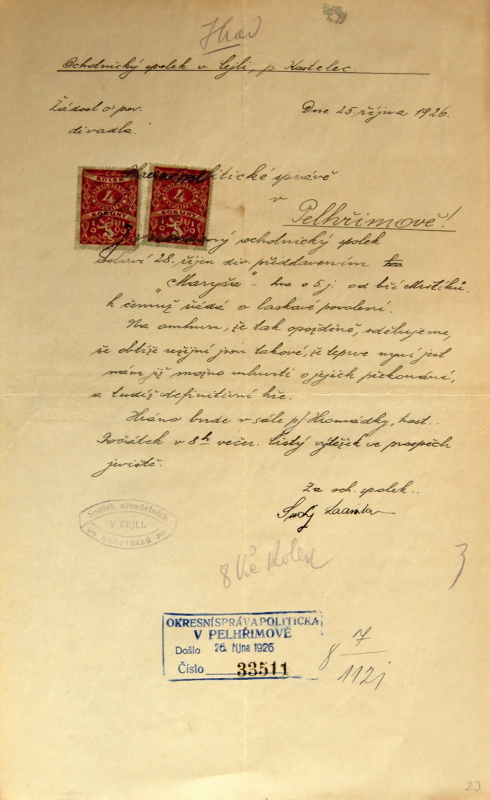 Ochotnický spolek v Cejli, p. Kostelec.
Žádost o pov.
divadla.
Dne 25 října 1926.
Okresní politické správě
v
Pelhřimově!
ochotnický spolek
oslaví 28. říjen div. představením
„Maryša" - hra o 5 j. od bří Mrštíků.
k čemuž žádá o laskavé povolení.
Na omluvu, že tak opožděně, sdělujeme,
že obtíže režijní jsou takové, že teprve nyní jest
nám již možno mluviti o jejich překonání,
a tudíž definitivní hře.
Hráno bude v sále p. Hromádky, host..
Počátek v 8 h večer. Čistý výtěžek ve prospěch
jeviště.
Za och. spolek..
Spolek divadelních
V CEJLI.
ochotníků
8 Kč Kolek
OKRESNÍ SPRÁVA POLITICKÁ
V PELHŘIMOVĚ
Došlo 26. října 1926
Číslo 33511
8 7
1121
29